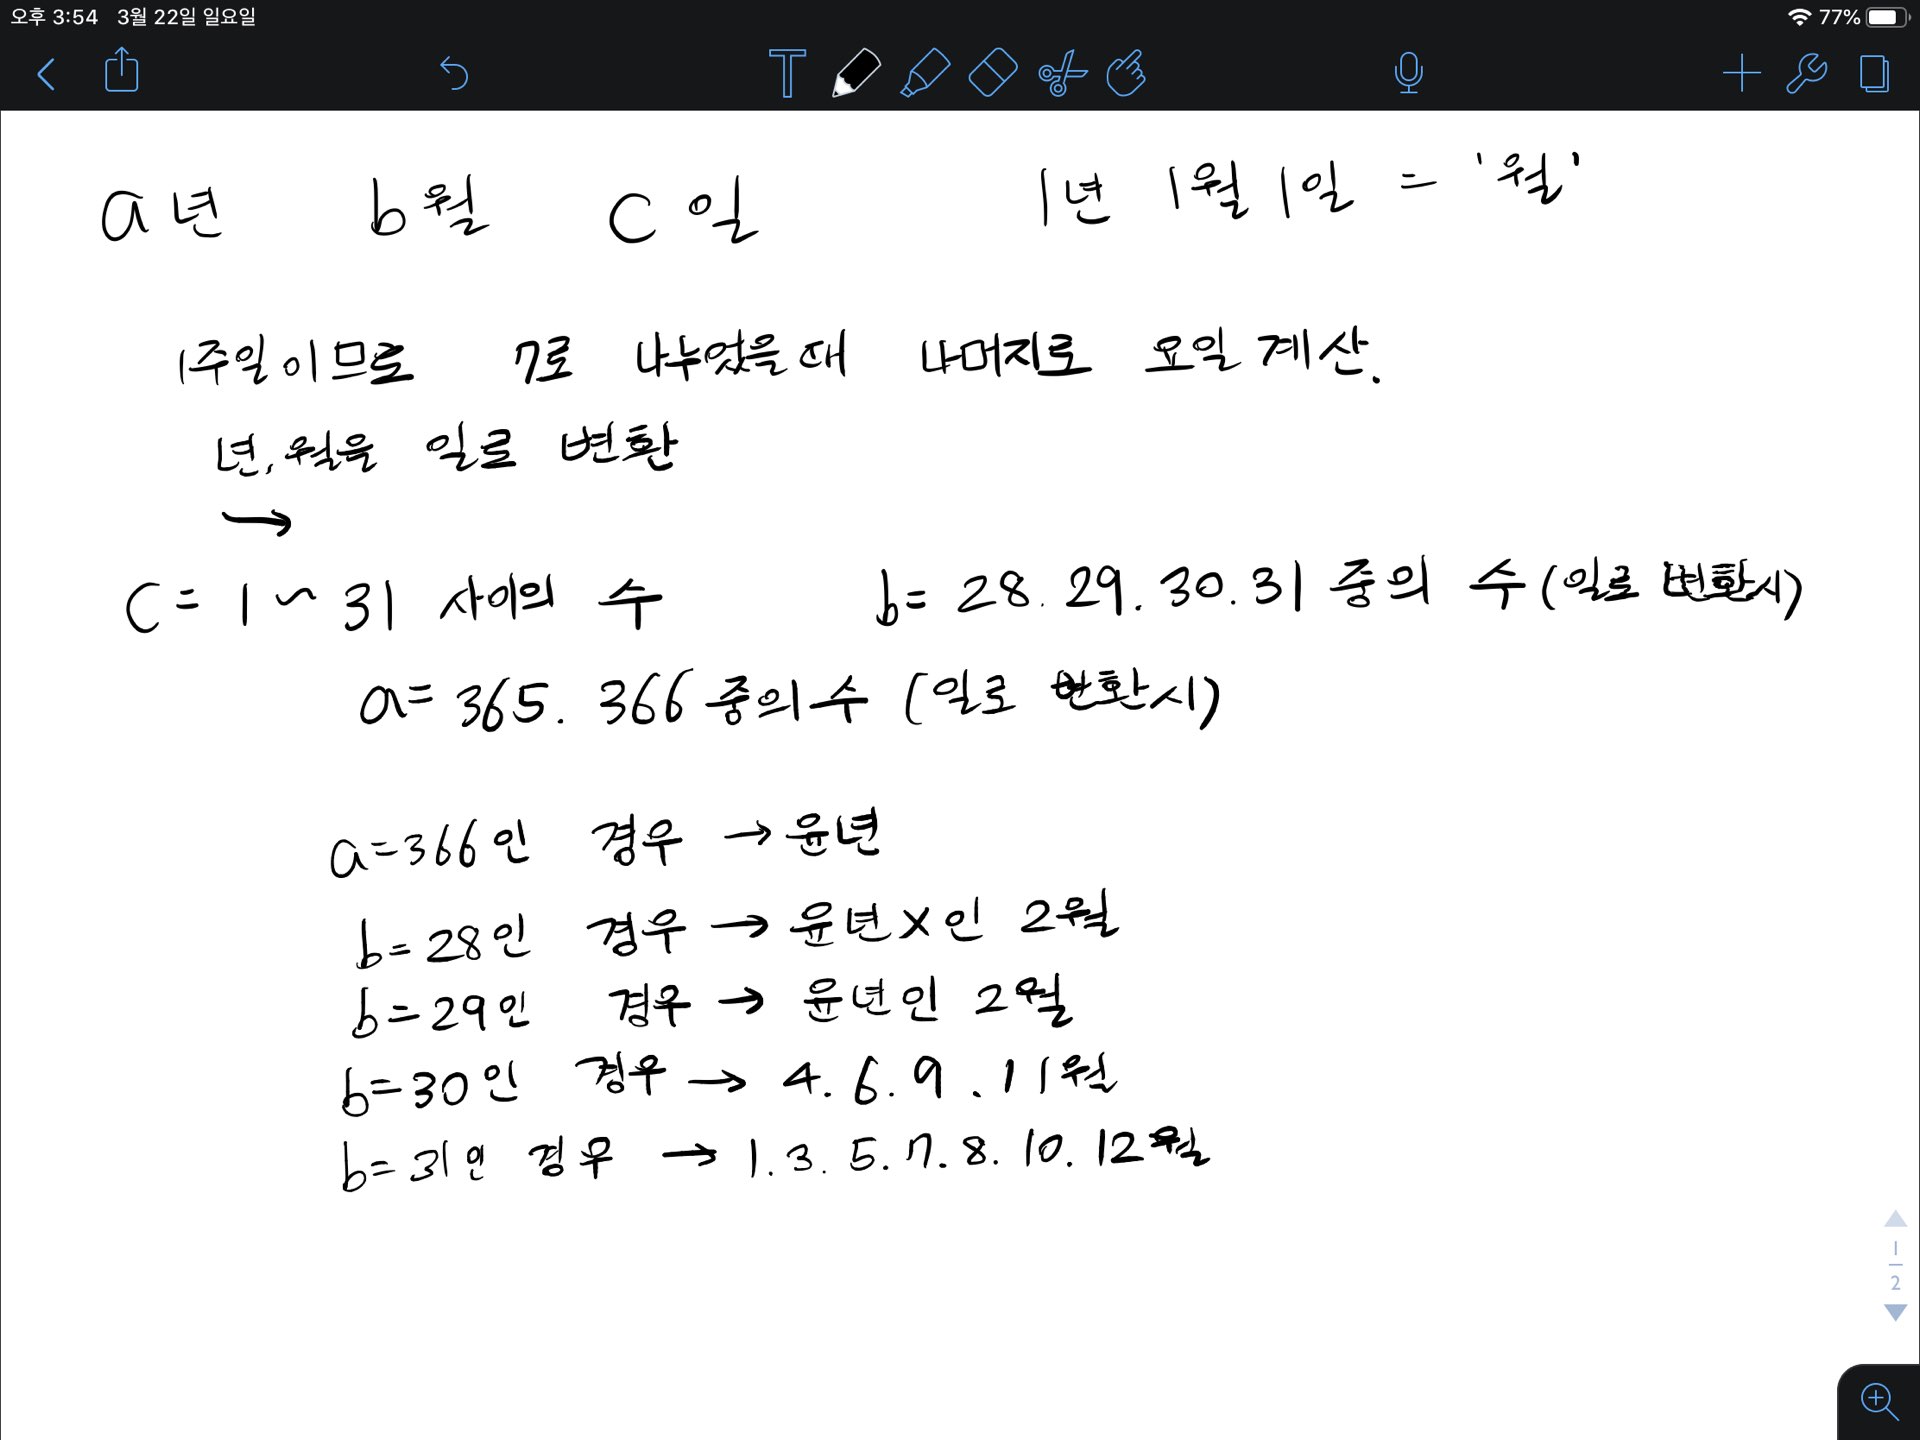 오후 3:54 3월 22일 일요일 77%
T
a년 b월 c일 1년 1월 1일 = '월'
1주일이므로 7로 나누었을때 나머지로 요일계산.
년,월을 일로 변환
→
c = 1 ~ 31 사이의 수 b= 28. 29. 30. 31 중의 수 (일로 변환시)
a= 365. 366 중의수 (일로 변환시)
a=366인 경우 → 윤년
b=28인 경우 → 윤년X인 2월
b=29인 경우 → 윤년인 2월
b=30인 경우 → 4. 6. 9. 11월
b=31인 경우 → 1. 3. 5. 7. 8. 10. 12월
1
2